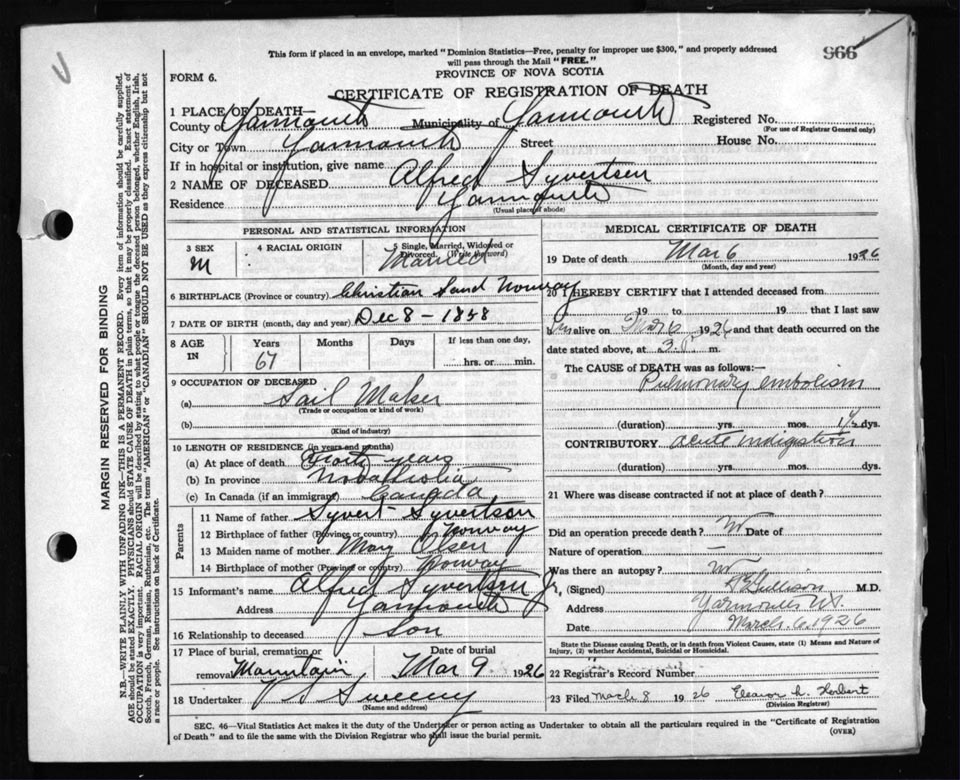 This form if placed in an envelope, marked "Dominion Statistics—Free, penalty for improper use $300," and properly addressed
will pass through the Mail "FREE."
966
FORM 6.
PROVINCE OF NOVA SCOTIA
CERTIFICATE OF REGISTRATION OF DEATH
1 PLACE OF DEATH—
County of Yarmouth Municipality of Yarmouth Registered No.
(For use of Registrar General only)
City or Town Yarmouth Street House No.
If in hospital or institution, give name
2 NAME OF DECEASED Alfred Syvertsen
Residence Yarmouth
(Usual place of abode)
PERSONAL AND STATISTICAL INFORMATION
3 SEX M
4 RACIAL ORIGIN
5 Single, Married, Widowed or
Divorced. (Write the word)
Married
6 BIRTHPLACE (Province or country) Christian Sand Norway
7 DATE OF BIRTH (month, day and year) Dec 8 - 1858
8 AGE IN Years 67 Months Days If less than one day,
hrs. or min.
9 OCCUPATION OF DECEASED
(a) Sail Maker
(Trade or occupation or kind of work)
(b)
(Kind of industry)
10 LENGTH OF RESIDENCE (in years and months)
(a) At place of death Forty years
(b) In province Nova Scotia
(c) In Canada (if an immigrant) Canada
Parents
11 Name of father Syvert Syvertsen
12 Birthplace of father (Province or country) Norway
13 Maiden name of mother Mary Olsen
14 Birthplace of mother (Province or country) Norway
15 Informant's name Alfred Syvertsen Jr
Address Yarmouth
16 Relationship to deceased Son
17 Place of burial, cremation or
removal Mountain
Date of burial
Mar 9 1926
18 Undertaker V S Sweeny
(Name and address)
MEDICAL CERTIFICATE OF DEATH
19 Date of death Mar 6 1926
(Month, day and year)
20 I HEREBY CERTIFY that I attended deceased from
19 to 19 that I last saw
him alive on Mar 6 1926 and that death occurred on
date stated above, at 3 P. m.
The CAUSE of DEATH was as follows:—
Pulmonary embolism
(duration) yrs. mos. 1/2 dys.
CONTRIBUTORY acute indigestion
(duration) yrs. mos. dys.
21 Where was disease contracted if not at place of death?
Did an operation precede death? Date of
Nature of operation
Was there an autopsy?
(Signed) M.D.
Address Yarmouth N.S.
Date March. 6. 1926
State the Disease causing Death, or in death from Violent Causes, state (1) Means and Nature of
Injury, (2) whether Accidental, Suicidal or Homicidal.
22 Registrar's Record Number
23 Filed March 8 1926 Herbert
(Division Registrar)
SEC. 46—Vital Statistics Act makes it the duty of the Undertaker or person acting as Undertaker to obtain all the particulars required in the "Certificate of Registration
of Death" and to file the same with the Division Registrar who shall issue the burial permit.
(OVER)
MARGIN RESERVED FOR BINDING
N.B.—WRITE PLAINLY WITH UNFADING INK—THIS IS A PERMANENT RECORD. Every item of information should be carefully supplied.
AGE should be stated EXACTLY. PHYSICIANS should STATE CAUSE OF DEATH in plain terms, so that it may be properly classified. Exact statement of
OCCUPATION is very important. RACIAL ORIGIN will be described by stating to what people or tongue the deceased person belonged, whether English, Irish,
Scotch, French, German, Russian, Ruthenian, etc. The terms "AMERICAN" or "CANADIAN" SHOULD NOT BE USED as they express citizenship but not
a race or people. See instructions on back of Certificate.